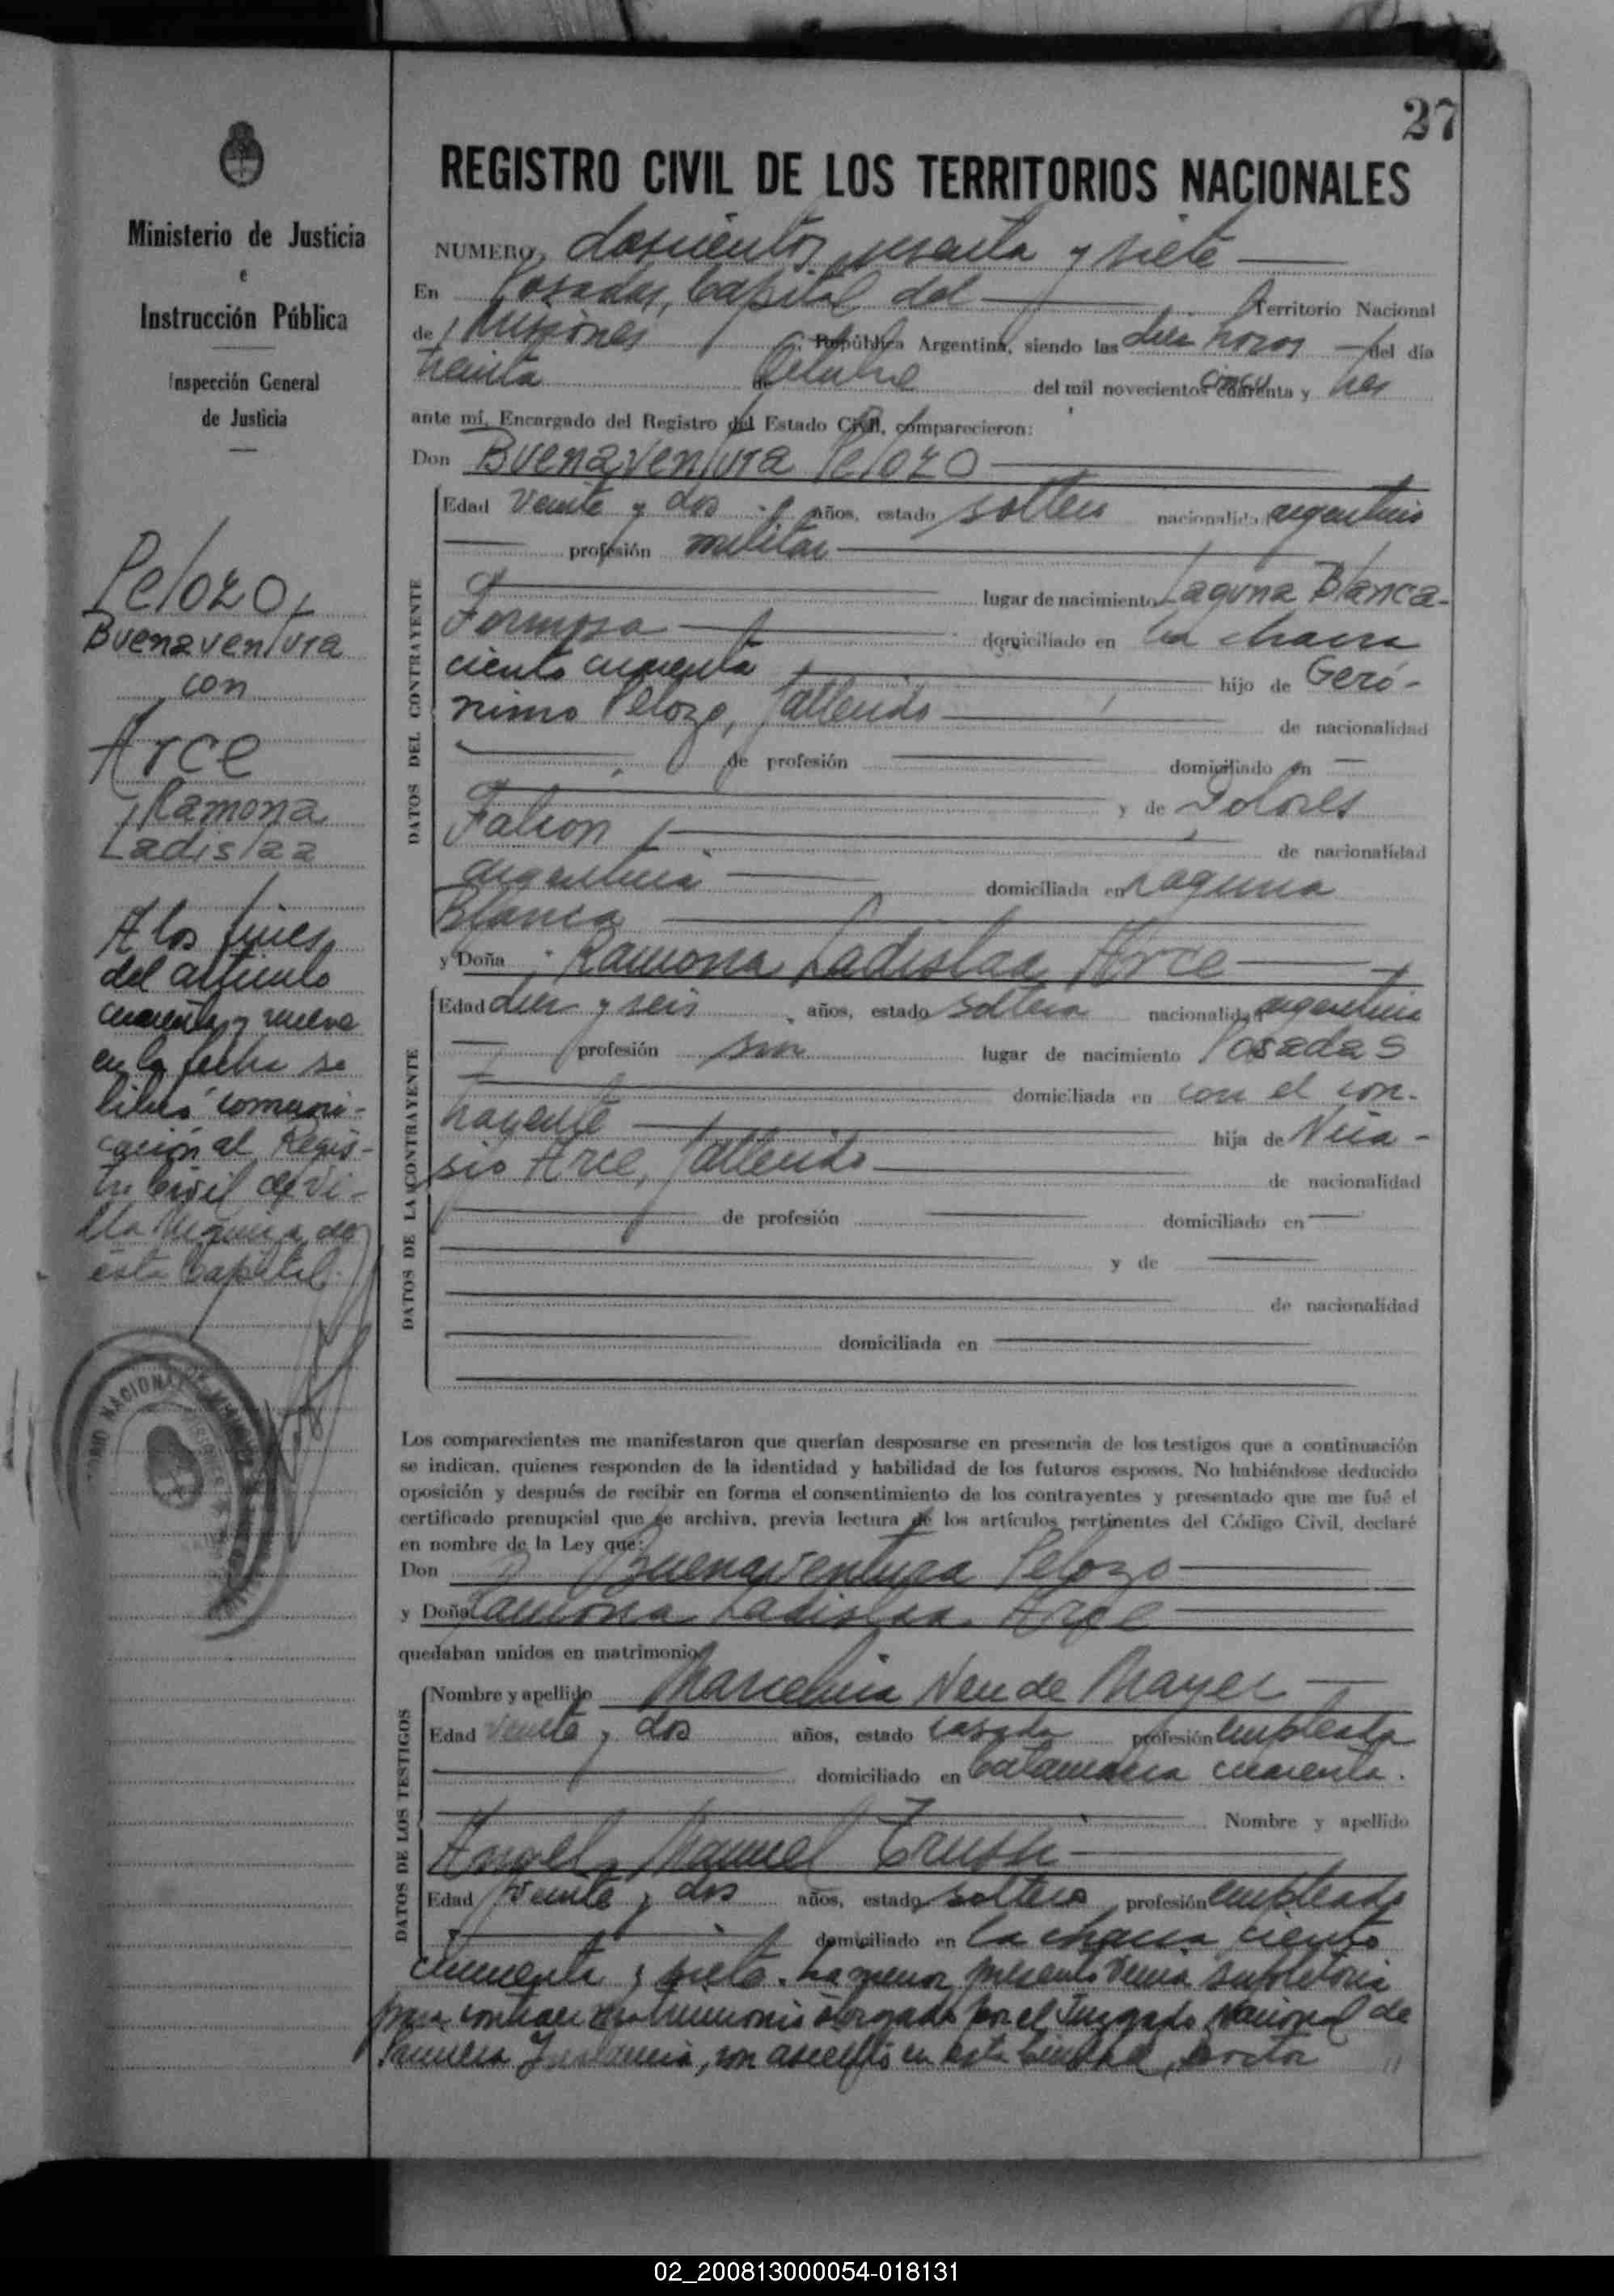 27
Ministerio de Justicia
e
Instrucción Pública
Inspección General
de Justicia
Pelozo,
Buenaventura
con
Arce
Ramona
Ladislaa
A los fines
del artículo
cuarenta y nueve
en la fecha se
libró comuni-
cación al Regis-
tro Civil de Vi-
lla Urquiza de
esta Capital.
REGISTRO CIVIL DE LOS TERRITORIOS NACIONALES
NUMERO doscientos sesenta y siete
En Posadas, Capital del Territorio Nacional
de Misiones República Argentina, siendo las diez horas del día
treinta de Octubre del mil novecientos cuarenta cinco y tres
ante mí, Encargado del Registro del Estado Civil, comparecieron:
Don Buenaventura Pelozo
DATOS DEL CONTRAYENTE
Edad veinte y dos años, estado soltero nacionalidad argentino
profesión militar
lugar de nacimiento Laguna Blanca-
Formosa domiciliado en la chacra
ciento cuarenta hijo de Geró-
nimo Pelozo, fallecido de nacionalidad
de profesión domiciliado en
y de Dolores
Falcon de nacionalidad
argentina domiciliada en Laguna
Blanca
y Doña Ramona Ladislaa Arce
DATOS DE LA CONTRAYENTE
Edad diez y seis años, estado soltera nacionalidad argentina
profesión sin lugar de nacimiento Posadas
domiciliada en con el con-
trayente hija de Nica-
sio Arce, fallecido de nacionalidad
de profesión domiciliado en
y de
de nacionalidad
domiciliada en
Los comparecientes me manifestaron que querían desposarse en presencia de los testigos que a continuación
se indican, quienes responden de la identidad y habilidad de los futuros esposos. No habiéndose deducido
oposición y después de recibir en forma el consentimiento de los contrayentes y presentado que me fué el
certificado prenupcial que se archiva, previa lectura de los artículos pertinentes del Código Civil, declaré
en nombre de la Ley que:
Don Buenaventura Pelozo
y Doña Ramona Ladislaa Arce
quedaban unidos en matrimonio
DATOS DE LOS TESTIGOS
Nombre y apellido Marcelina Neu de Mayer
Edad veinte y dos años, estado casada profesión empleada
domiciliado en Catamarca cuarenta.
Nombre y apellido
Angel Manuel
Edad veinte y dos años, estado soltero profesión empleado
domiciliado en la chacra ciento
cuarenta y siete. La menor presentó venia supletoria
para contraer matrimonio otorgada por el Juzgado Nacional de
Primera Instancia, con asiento en esta Ciudad, doctor
02_200813000054-018131